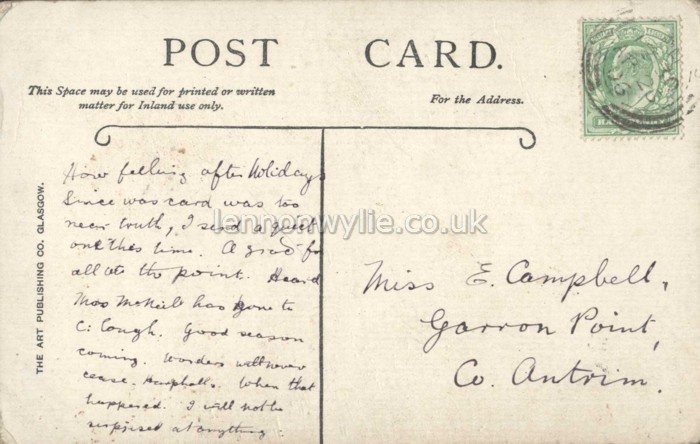 POST CARD.
This Space may be used for printed or written
matter for Inland use only.
For the Address.
THE ART PUBLISHING CO. GLASGOW.
How felling after Holidays
Since was card was too
near truth, I send a quiet
one this time. A
all at the point. Heard
McNeill has gone to
C: Lough. Good season
coming. Wonders will never
cease. When that
happened. I will not be
surprised at anything
Miss E. Campbell,
Garron Point,
Co. Antrim.
lennonwylie.co.uk